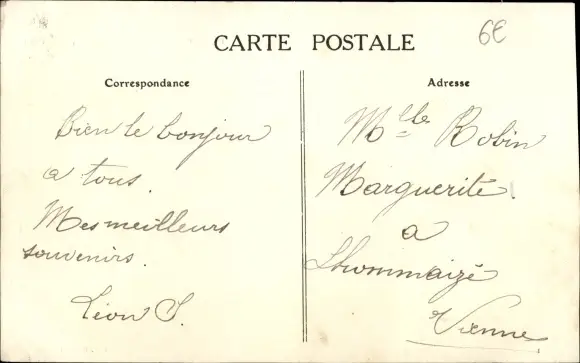 6€
CARTE POSTALE
Correspondance
Bien le bonjour
a tous.
Mes meilleurs
souvenirs.
Léon S.
Adresse
Mlle Robin
Marguerite
a
Lhommaizé
Vienne